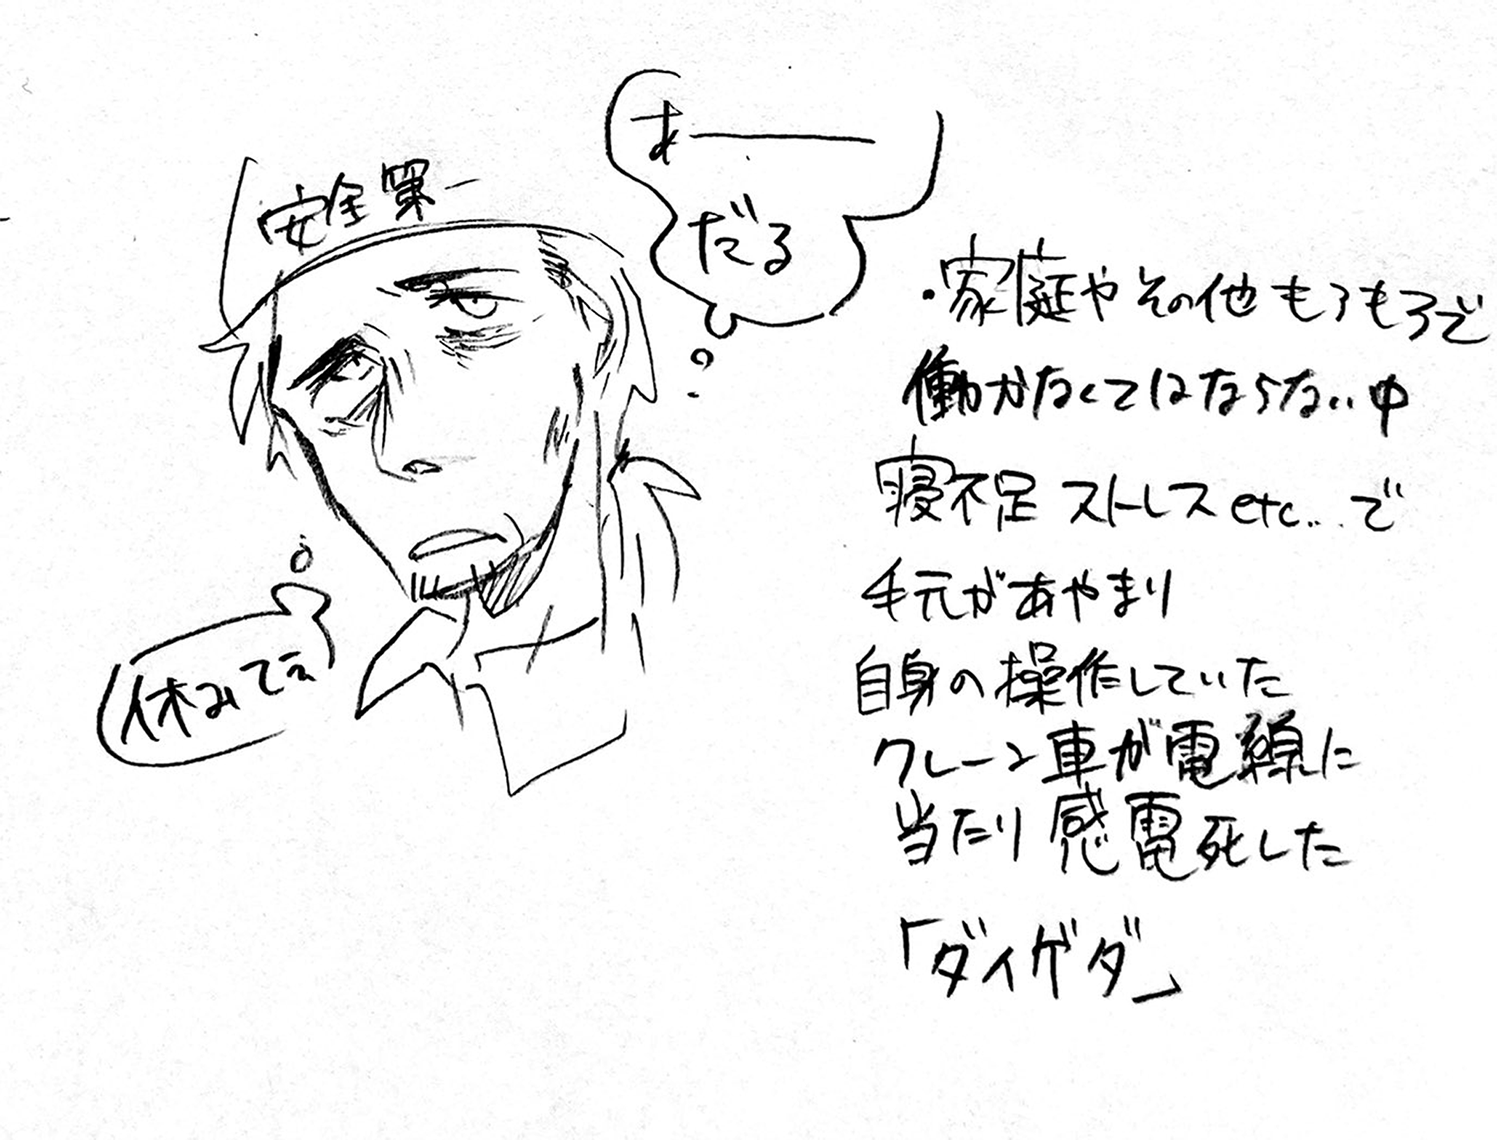 安全第一
あー
だる
休みてえ
・家庭やその他もろもろで
働かなくてはならない中
寝不足ストレスetc...で
手元があやまり
自身の操作していた
クレーン車が電線に
当たり感電死した
「ダイゲダ」